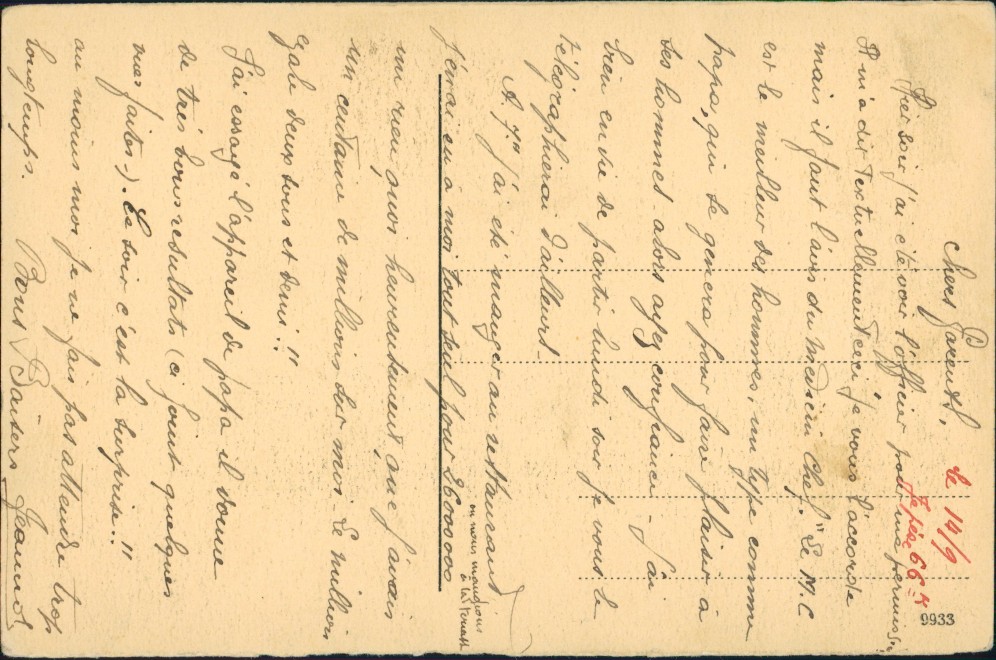 le 14/9
Chers Parents,
Hier soir j'ai été voir l'officier pour ma permis.
Il m'a dit textuellement ceci "je vous l'accorde
mais il faut l'avis du Médecin Chef." Le M.C
est le meilleur des hommes, un type comme
papa, qui se generait pour faire plaisir à
ses hommes - alors ayez confiance - J'ai
bien envie de partir lundi soir je vous le
télégraphierai d'ailleurs -
J'ai été manger au restaurant
on nous mangions
J'en ai eu à moi tout seul pour 2600000
un rien, mais heureusement que j'avais
un centaine de millions sur moi - Le million
égale deux sous et demi !!
J'ai essayé l'appareil de papa il donne
de très bons resultats (ci joint quelques
unes faites). Ce soir c'est la surprise.. !!
au moins moi je ne fais pas attendre trop
longtemps.
Bons Baisers
9933